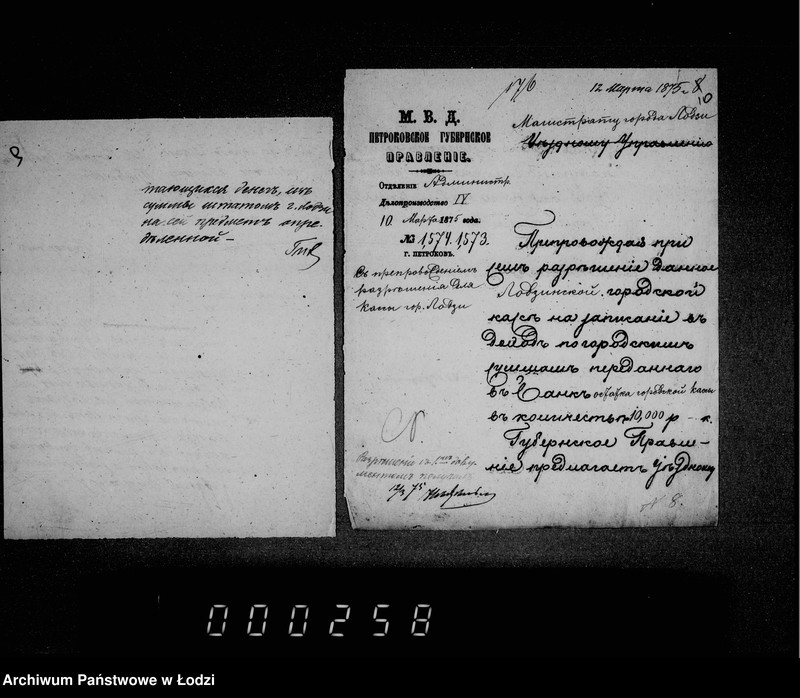 тающихся денегъ, изъ
суммы штатомъ г. Лодзи
на сей предметъ опре-
дѣленной —
12 Марта 1875 г. 8
10
М. В. Д.
ПЕТРОКОВСКОЕ ГУБЕРНСКОЕ
ПРАВЛЕНІЕ.
Магистрату города Лодзи
Уѣздному Управленію
Отдѣленіе Администр.
Дѣлопроизводство IV
10 Марта 1875 года.
№ 1574.1573.
г. ПЕТРОКОВЪ.
Съ препровожденіемъ
разрѣшенія для
кассы гор. Лодзи
Препровождая при
семъ разрѣшеніе данное
Лодзинской городской
кассѣ на записаніе въ
по городскимъ
суммамъ переданнаго
въ Банкъ остатка городской кассы
въ количествѣ 10,000 р — к.
Губернское Правле-
ніе предлагаетъ Уѣздному
12/3 75
N 8.
000258
Archiwum Państwowe w Łodzi